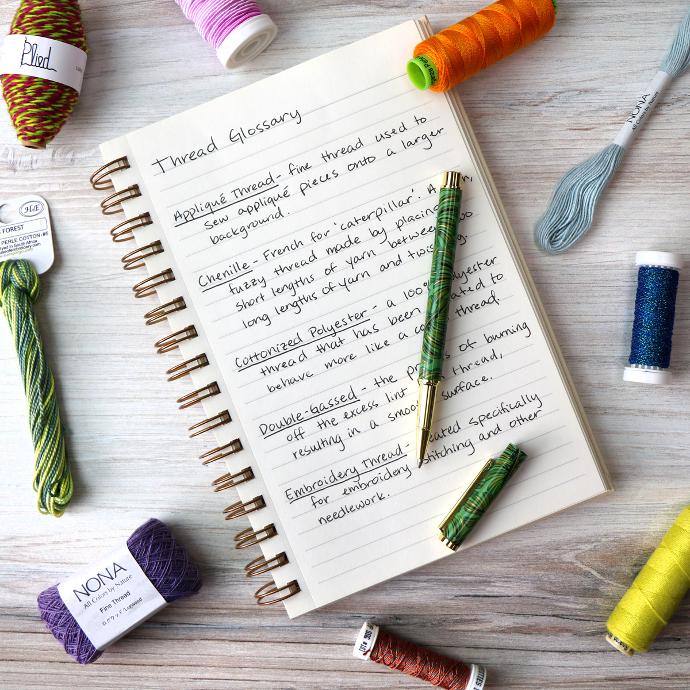 Thread Glossary
Appliqué Thread - fine thread used to
sew appliqué pieces onto a larger
background.
Chenille - French for 'caterpillar'. A
fuzzy thread made by placing
short lengths of yarn between
long lengths of yarn and
Cottonized Polyester - a 100% Polyester
thread that has been
behave more like a thread.
Double-Gassed - the of burning
off the excess lint thread,
resulting in a surface.
Embroidery Thread - specifically
for embroidery stitching and other
needlework.
Plied
NONA
FOREST
PERLE COTTON #8
NONA
All Colors by Nature
Fine Thread